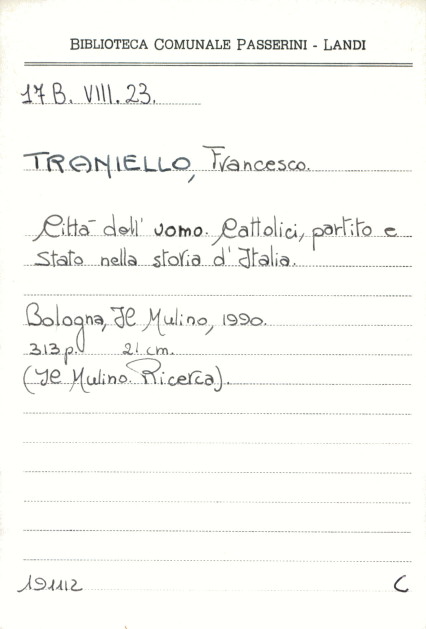 BIBLIOTECA COMUNALE PASSERINI - LANDI
17 B. VIII. 23.
TRANIELLO, Francesco.
Città dell' uomo. Cattolici, partito e
Stato nella storia d' Italia.
Bologna, Il Mulino, 1990.
313 p. 21 cm.
(Il Mulino. Ricerca).
191112
C